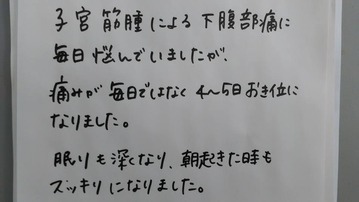 子宮筋腫による下腹部痛に
毎日悩んでいましたが、
痛みが毎日ではなく4〜5日おき位に
なりました。
眠りも深くなり、朝起きた時も
スッキリになりました。